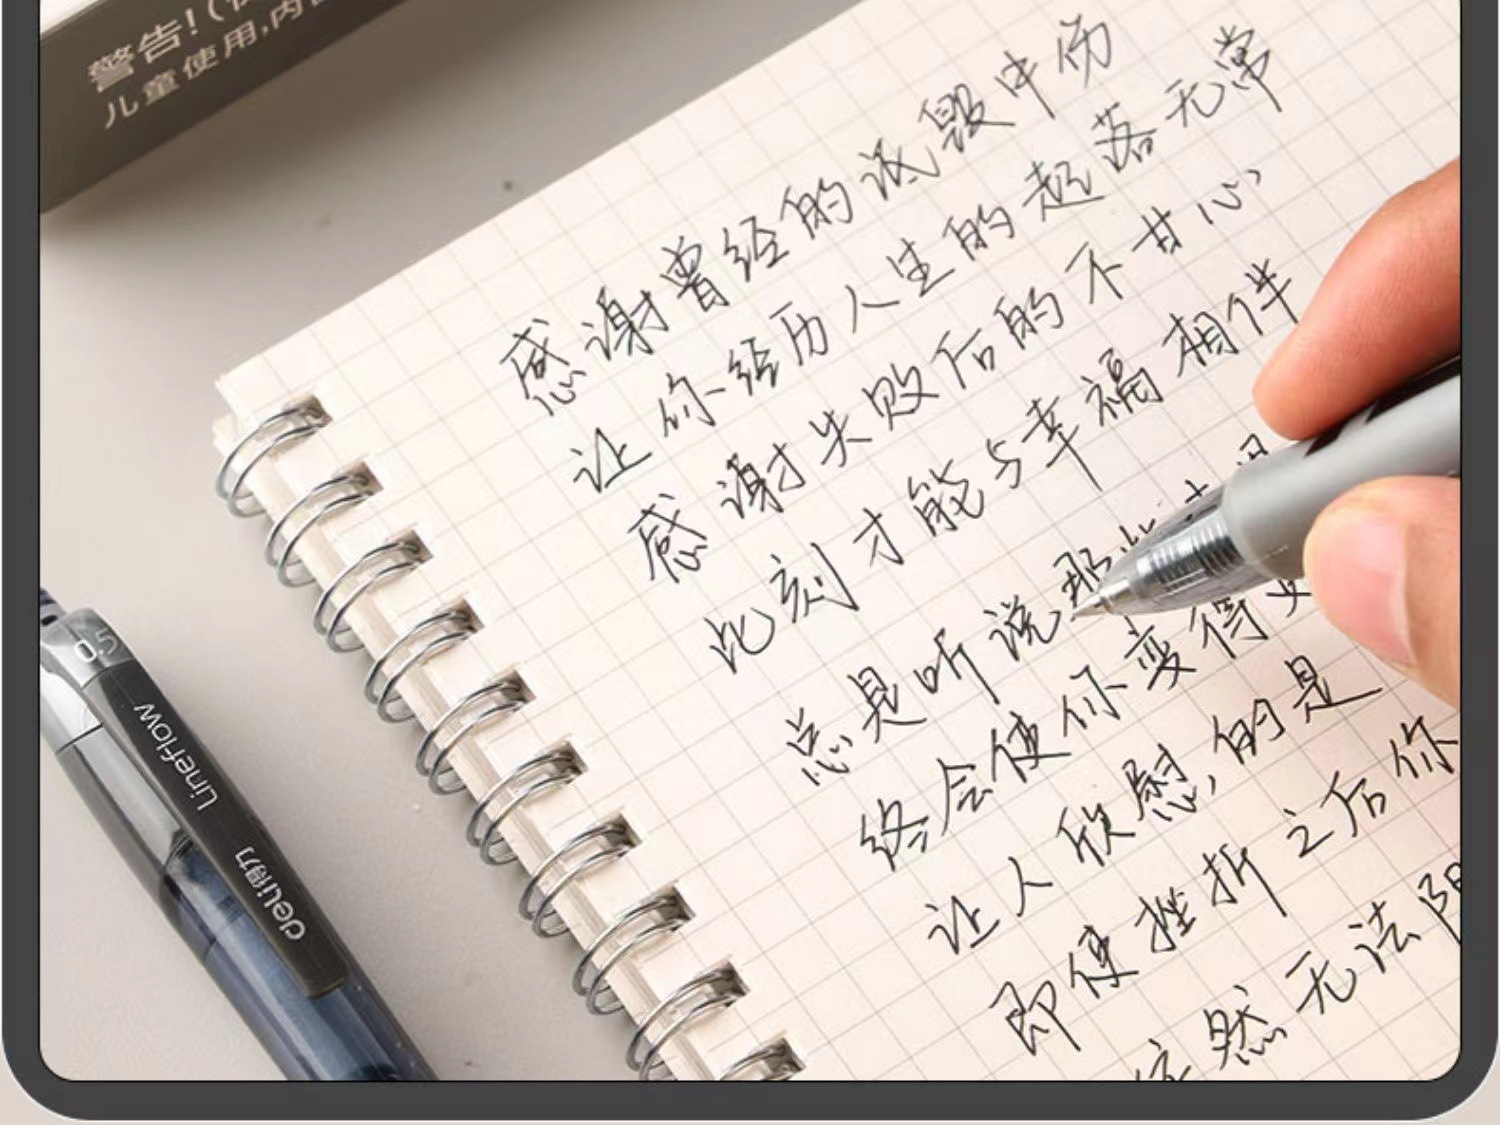 警告!(
儿童使用,内
感谢曾经的诋毁中伤
让你经历人生的起落无常
感谢失败后的不甘心
此刻才能与幸福相伴
总是听说那些
终会使你变得
让人欣慰的是
即使挫折之后你
依然无法阻
0.5
Lineflow
deli得力